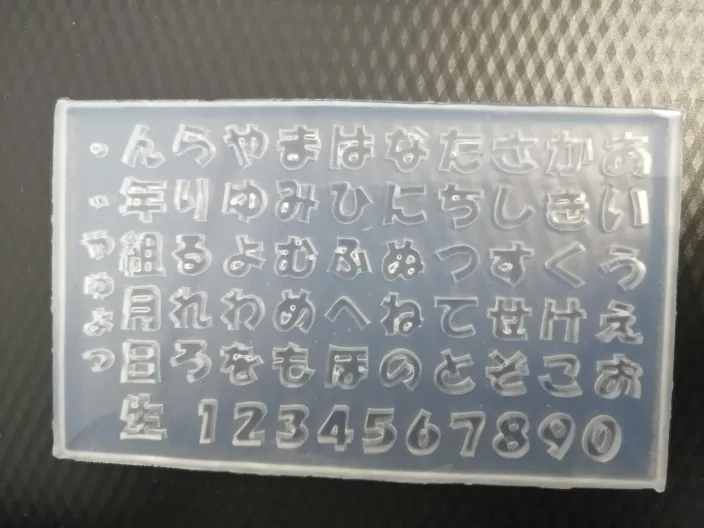 あいうえお
かきくけこ
さしすせそ
たちつてと
なにぬねの
はひふへほ
まみむめも
やゆよわを
らりるれろ
ん年組月日生
゜゛ゃゅょっ
1234567890